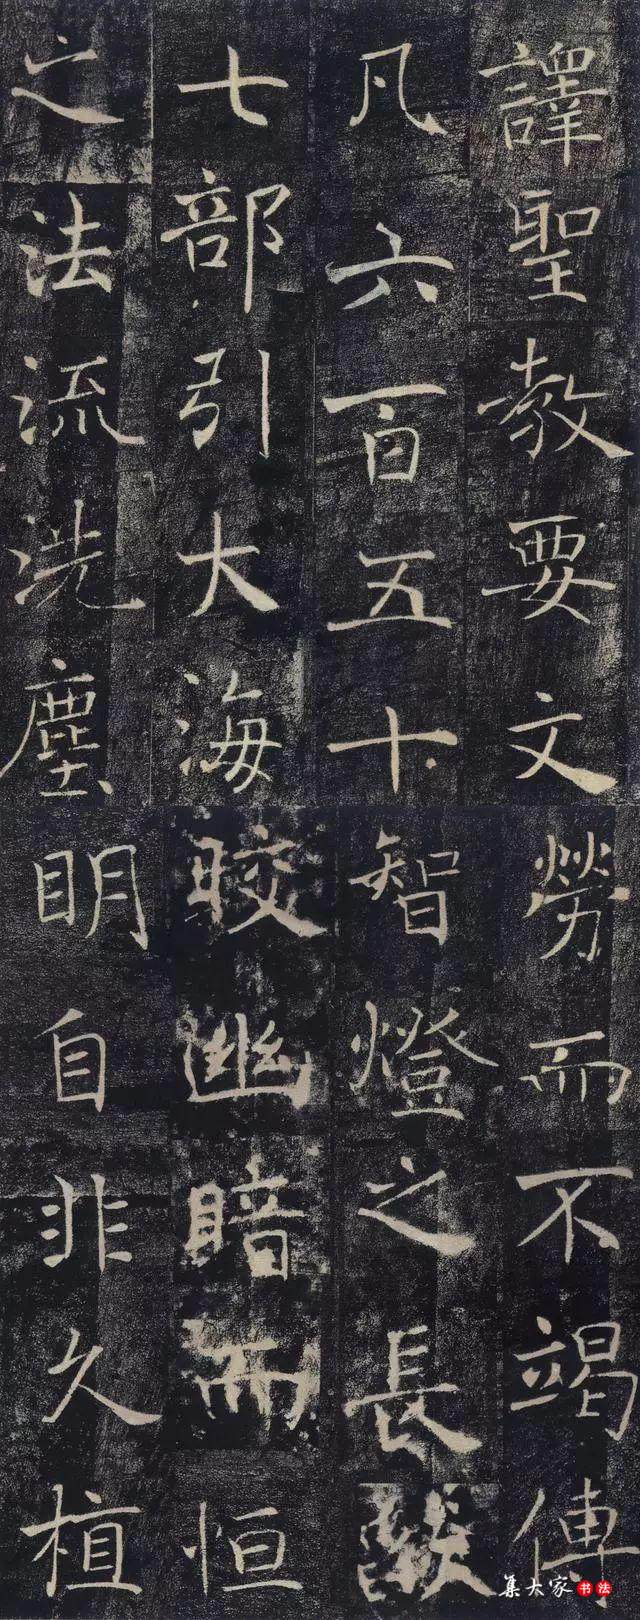 譯聖教要文
凡六百五十
七部引大海
之法流洗塵
勞而不竭傳
智燈之長燄
皎幽暗而恒
明自非久植
集大家书法